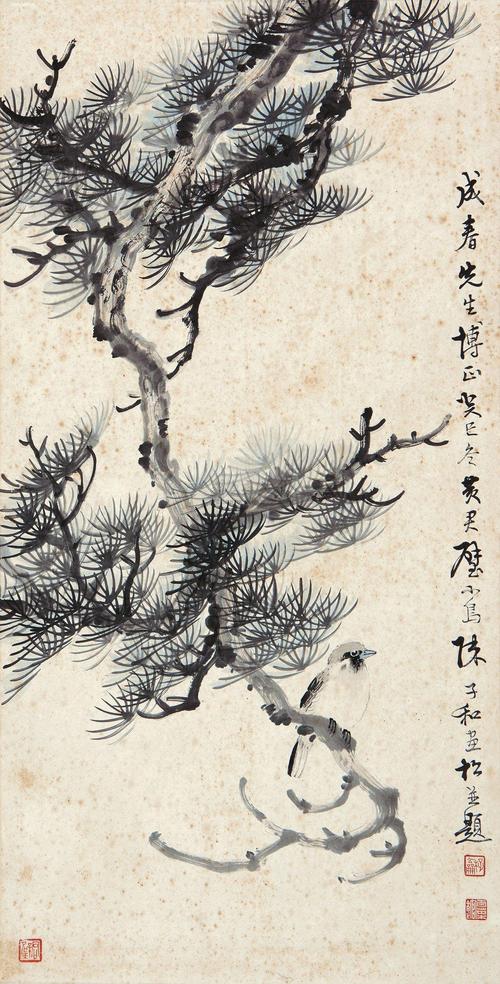 成春先生博正癸巳冬黄君璧小鳥陳子和画松並題